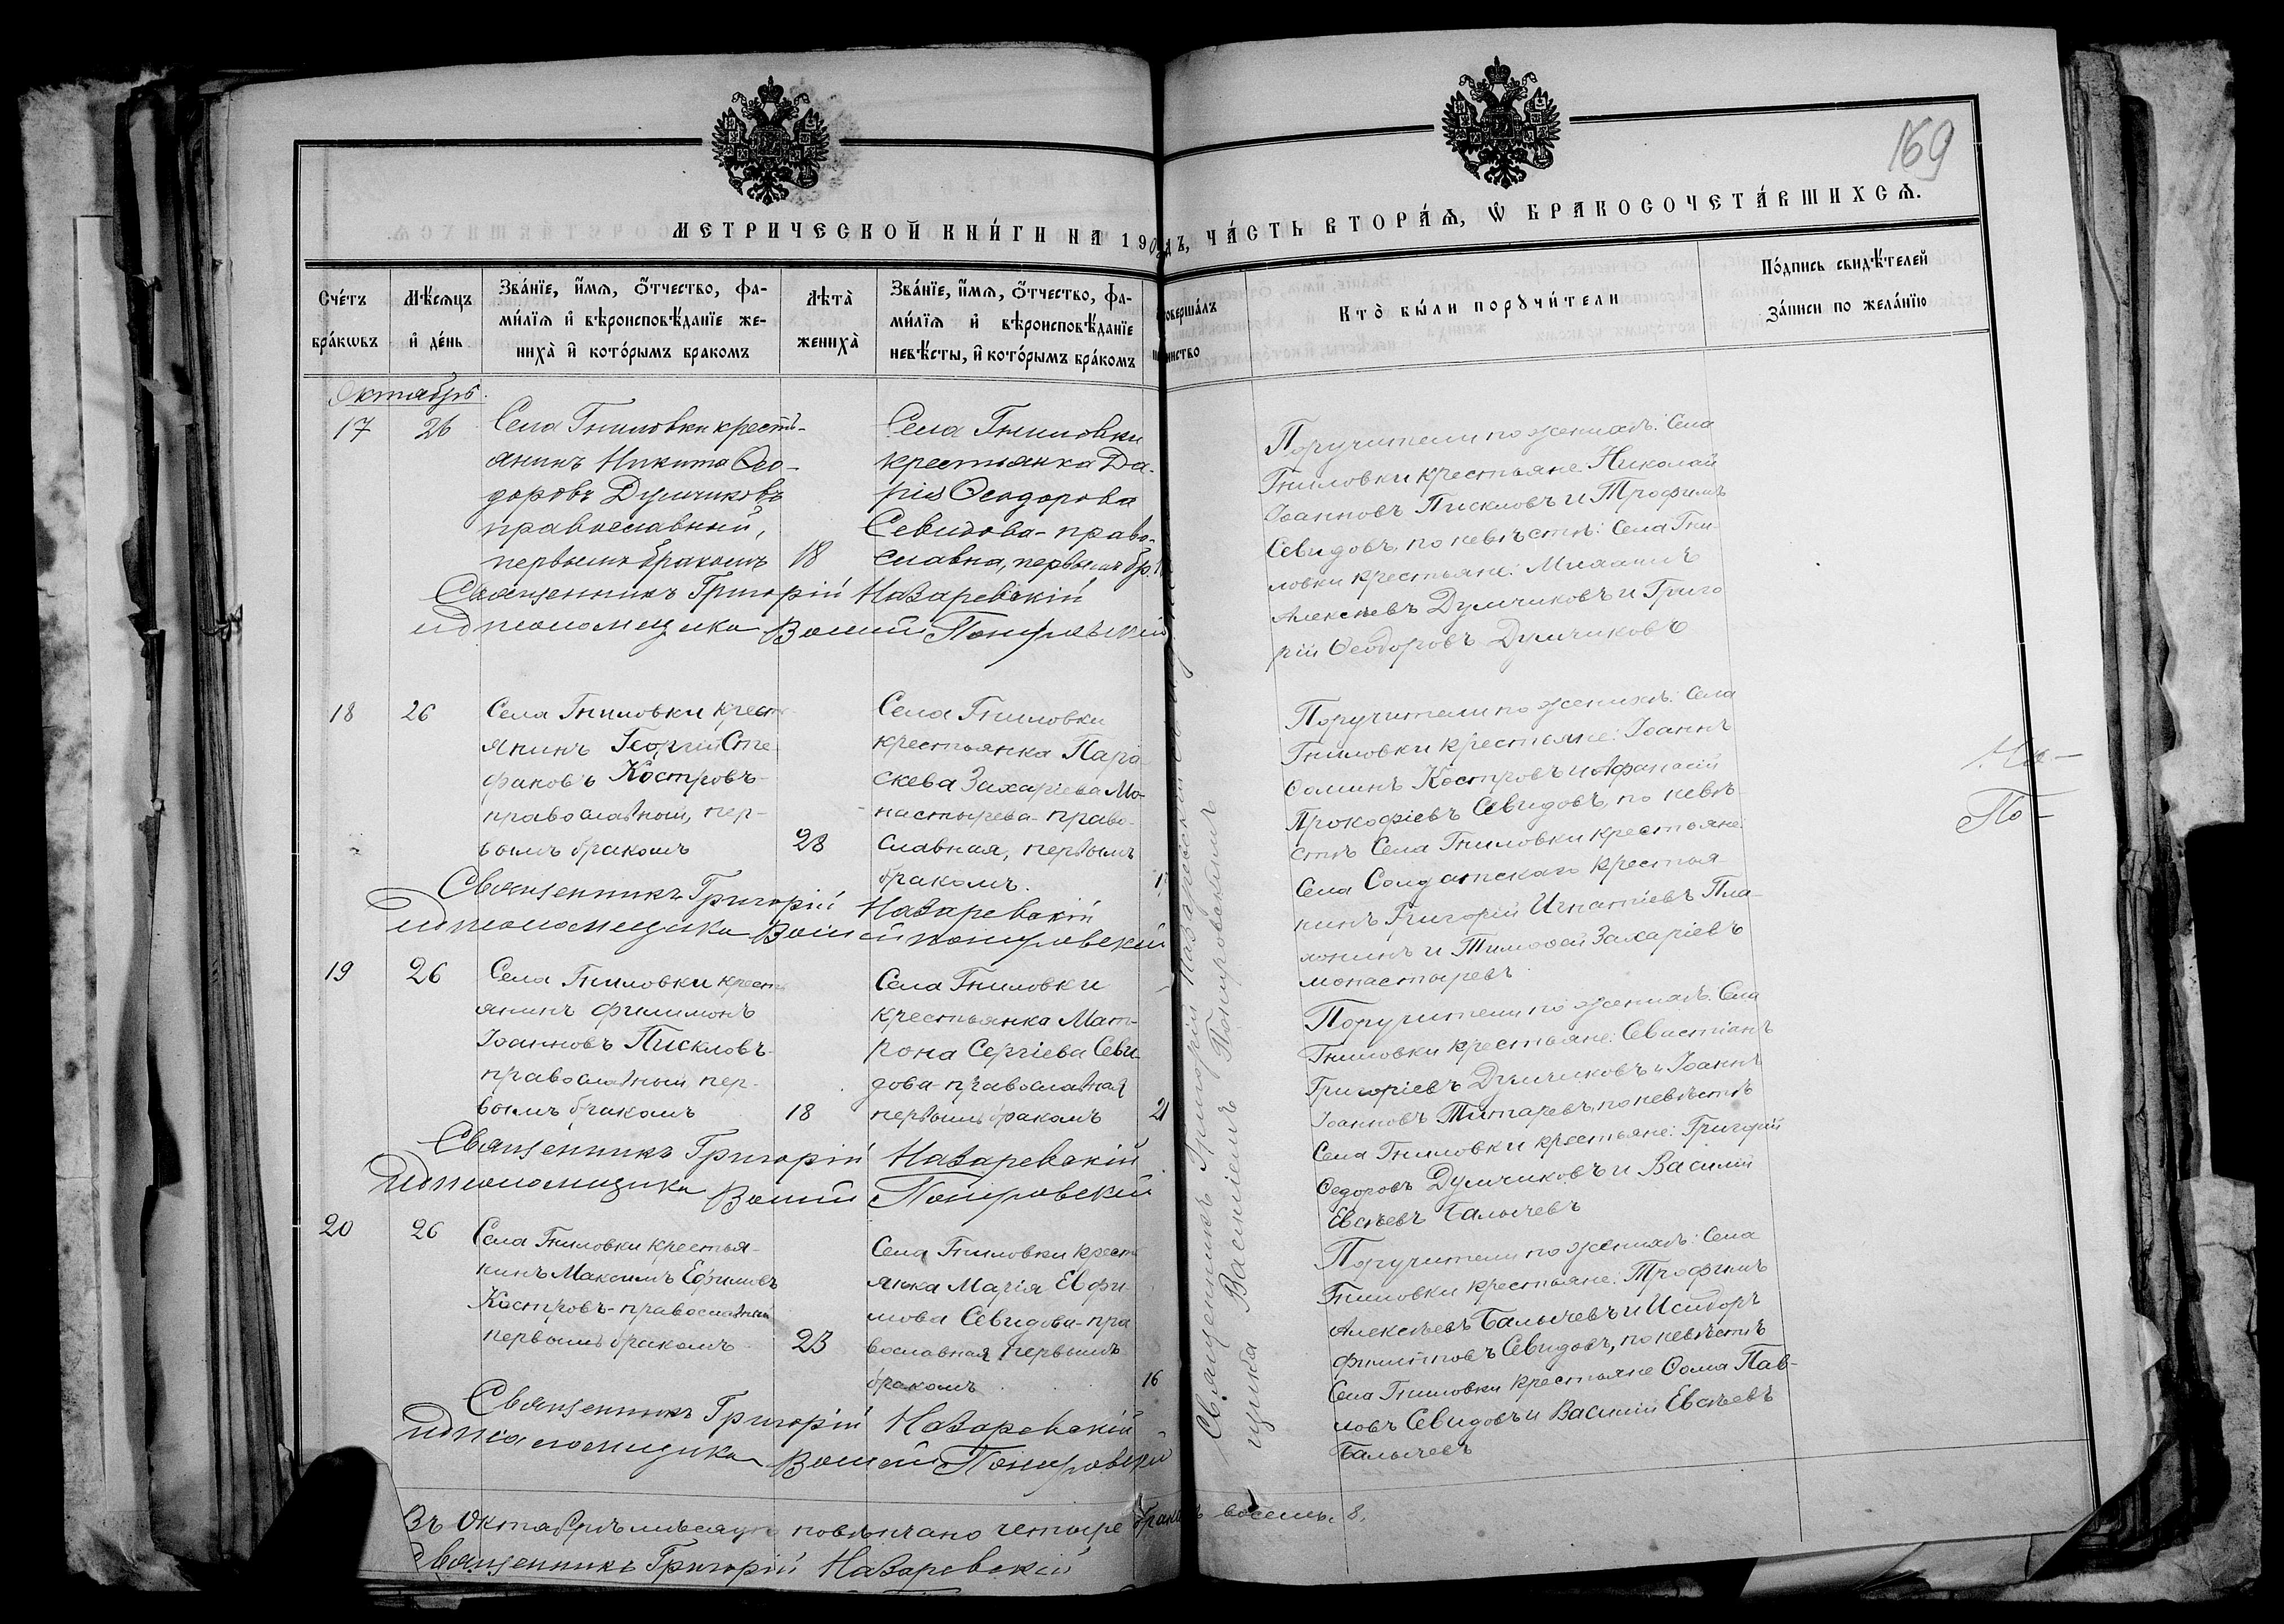 169
МЕТРИЧЕСКОЙ КНИ́ГИ НА 190 ДЪ, ЧА́СТЬ ВТОРА́Я, Ѡ БРАКОСОЧЕТА́ВШИХСЯ.
Сче́тъ бра́кѡвъ
Мѣ́сяцъ и де́нь
Зва́нїе, и́мя, о́тчество, фа-
ми́лїя и вѣроисповѣ́данїе же-
ниха̀ и кото́рымъ бракомъ
Лѣта̀ жениха̀
Зва́нїе, и́мя, о́тчество, фа-
ми́лїя и вѣроисповѣ́данїе
невѣ́сты, и кото́рымъ бра́комъ
совершáлъ
Кто̀ бы́ли порꙋчи́тели
По́дпись свидѣ́телей
за́писи по жела́нїю
Октябрь.
17 26
Села Гниловки кресть-
янинъ Никита Ѳео-
доровъ Думчиковъ
православный,
первымъ бракомъ 18
Села Гниловки
крестьянка Да-
рія Ѳеодорова
Севидова - право-
славна, первымъ бр.
Священникъ Григорій Назаревскій
Поручители по женихѣ: Села
Гниловки крестьяне Николай
Іоанновъ Писκловъ и Трофимъ
Севидовъ, по невѣстѣ: Села Гни-
ловки крестьяне: Михаилъ
Алексѣевъ Думчиковъ и Григо
рій Ѳеодоровъ Думчиковъ
18 26
Села Гниловки крест
янинъ Георгій Сте
фановъ Костровъ-
православный, пер-
вымъ бракомъ 23
Села Гниловки
крестьянка Пара
скева Захаріева Мо-
настырева - право-
славная, первымъ
бракомъ.
Священникъ Григорій Назаревскій
Поручители по женихѣ: Села
Гниловки крестьяне: Іоаннъ
Ѳоминъ Костровъ и Афанасій
Прокофіевъ Севидовъ, по невѣ
стѣ Села Гниловки крестьяне:
Села Солдатскаго крестья-
нинъ Григорій Игнатіевъ Пла-
хонинъ и Тимофей Захаріевъ
монастыревъ
По-
19 26
Села Гниловки кресть
янинъ Филимонъ
Іоанновъ Пискловъ-
православный, пер-
вымъ бракомъ 18
Села Гниловки
крестьянка Мат-
рона Сергіева Севи-
дова - православная
первымъ бракомъ 21
Священникъ Григорій Назаревскій
Поручители по женихѣ: Села
Гниловки крестьяне: Севастіанъ
Григоріевъ Думчиковъ и Іоаннъ
Іоанновъ Титаревъ, по невѣстѣ
Села Гниловки крестьяне: Григорій
Ѳедоровъ Думчиковъ и Василій
Евсѣевъ Балычевъ
20 26
Села Гниловки крестья-
нинъ Максимъ Ефимовъ
Костровъ - православный
первымъ бракомъ 23
Села Гниловки крест
янка Марія Евфи
мова Севидова - пра
вославная первымъ
бракомъ 16
Священникъ Григорій Назаревскій
Поручители по женихѣ: Села
Гниловки крестьяне: Трофимъ
Алексѣевъ Балычевъ и Исидоръ
Филипповъ Севидовъ, по невѣстѣ
Села Гниловки крестьяне Ѳома Пав-
ловъ Севидовъ и Василій Евсѣевъ
Балычевъ
Священникъ Григорій Назаревскій
Василіемъ Покровскимъ
Въ Октябрѣ мѣсяцѣ повѣнчано четыре брака восемь. 8.
Священникъ Григорій Назаревскій